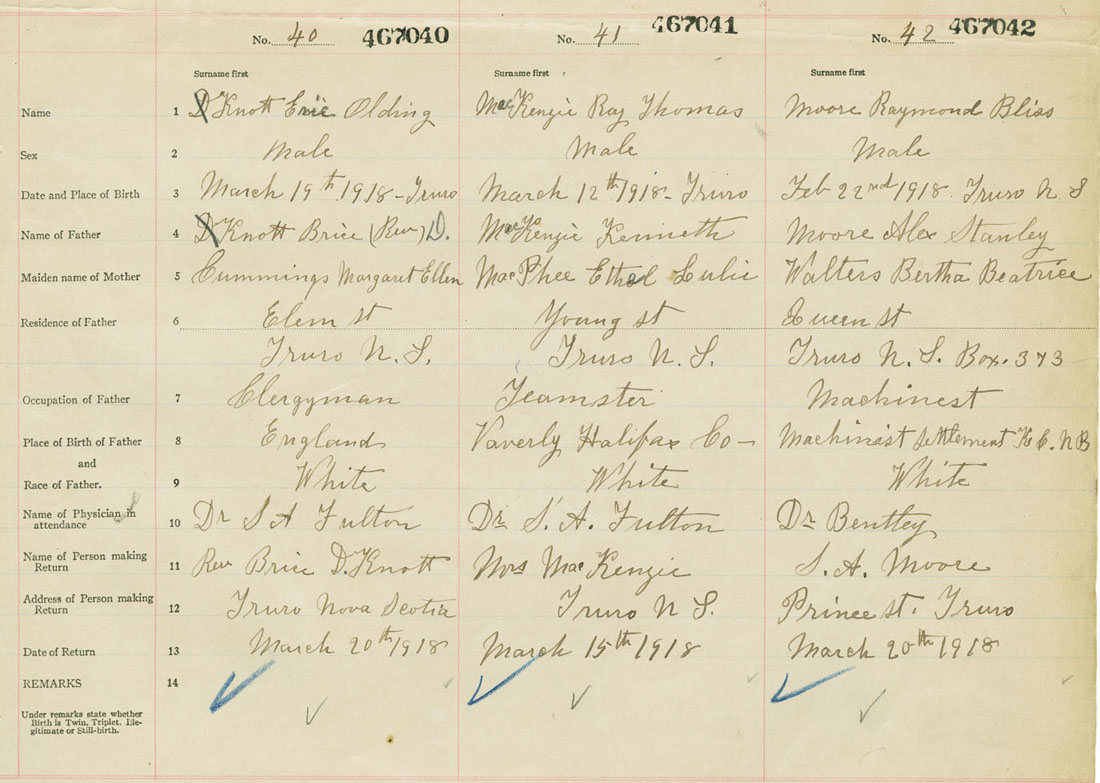 No. 40 467040 No. 41 467041 No. 42 467042
Surname first Surname first Surname first
Name 1 D Knott Eric Olding MacKenzie Roy Thomas Moore Raymond Bliss
Sex 2 Male Male Male
Date and Place of Birth 3 March 19th 1918 - Truro March 12th 1918 - Truro Feb 22nd 1918. Truro N S
Name of Father 4 D Knott Brice (Rev) D. MacKenzie Kenneth Moore Alex Stanley
Maiden name of Mother 5 Cummings Margaret Ellen MacPhee Ethel Lulie Walters Bertha Beatrice
Residence of Father 6 Elem st Young st Queen st
Truro N. S. Truro N. S. Truro N. S. Box. 373
Occupation of Father 7 Clergyman Teamster Machinest
Place of Birth of Father 8 England Vaverly Halifax Co - Machinist Settlement K C. N B
and
Race of Father. 9 White White White
Name of Physician in
attendance 10 Dr S A Fulton Dr S. A. Fulton Dr Bentley
Name of Person making
Return 11 Rev Brice D. Knott Mrs MacKenzie S. A. Moore
Address of Person making
Return 12 Truro Nova Scotia Truro N S. Prince st. Truro
Date of Return 13 March 20th 1918 March 15th 1918 March 20th 1918
REMARKS 14
Under remarks state whether
Birth is Twin, Triplet, Ille-
gitimate or Still-birth.